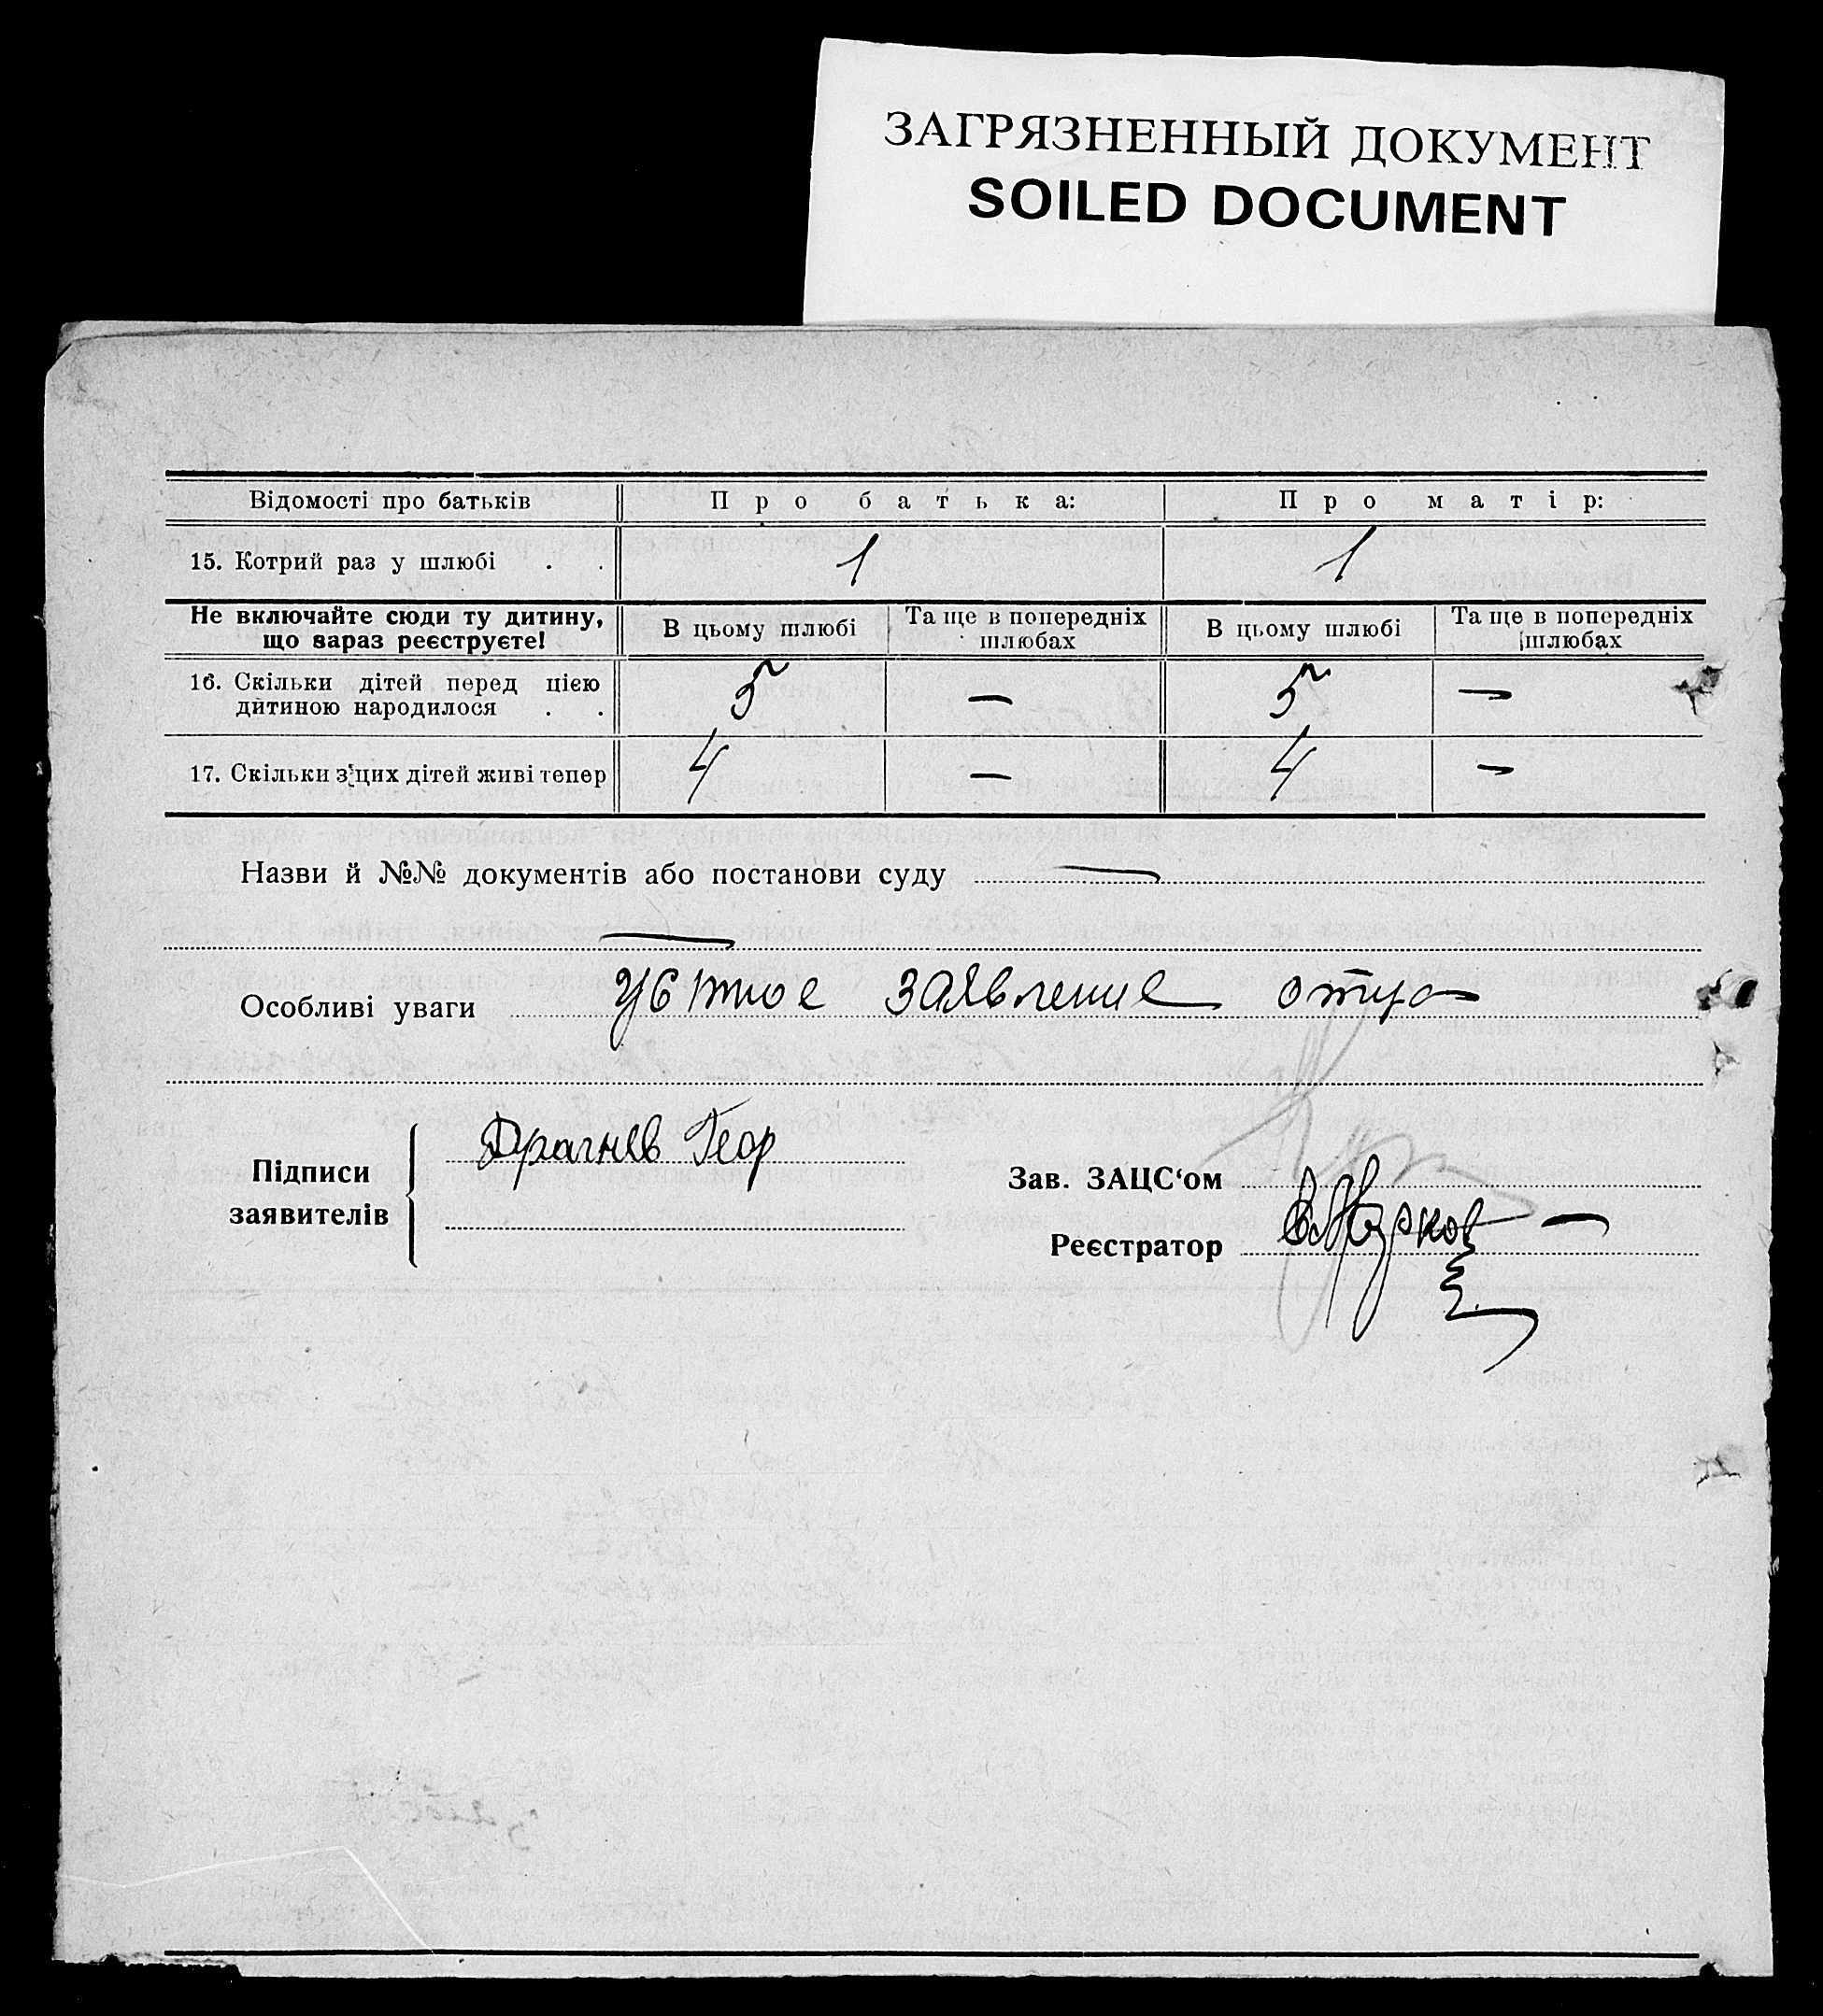 ЗАГРЯЗНЕННЫЙ ДОКУМЕНТ
SOILED DOCUMENT
Відомості про батьків Про батька: Про матір:
15. Котрий раз у шлюбі . . 1 1
Не включайте сюди ту дитину, що зараз реєструєте! В цьому шлюбі Та ще в попередніх шлюбах В цьому шлюбі Та ще в попередніх шлюбах
16. Скільки дітей перед цією
дитиною народилося . . 5 — 5 —
17. Скільки з цих дітей живі тепер 4 — 4 —
Назви й №№ документів або постанови суду —
—
Особливі уваги устное заявление отца
Підписи заявителів
Драгнев Геор
Зав. ЗАЦС‘ом
Реєстратор